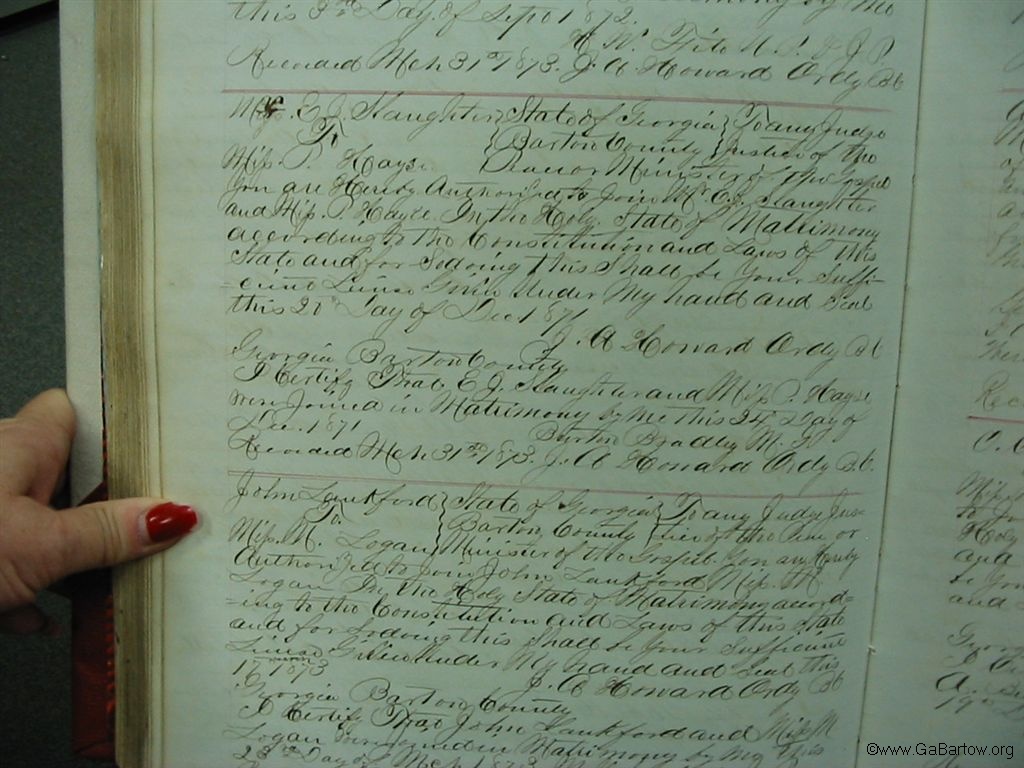 this 3rd Day of Sept 1872.
H. W. Fite N. P. & J. P.
Recorded Mch 31st 1873. J. A Howard Ordy B.C
Mr. E. J. Slaughter State of Georgia To any Judge
To Bartow County Justice of the
Miss. P. Hayse. Peace or Minister of the Gospel
You are Hereby Authorized to Join Mr. E. J. Slaughter
and Miss. P. Hayse In the Holy State of Matrimony
according to the Constitution and Laws of this
State and for So doing this Shall be Your Suffi-
=cient Given Under My hand and Seal
this 20 Day of Dec 1871
J. A Howard Ordy B.C
Georgia Bartow County
I Certify That E. J. Slaughter and Miss P. Hayse
were Joined in Matrimony by Me this 24 Day of
Dec. 1871 Bradley M. G.
Recorded Mch 31st 1873. J. A Howard Ordy B.C.
John Lankford State of Georgia To any Judge Jus-
To. Bartow County tice of the Peace or
Miss. M. Logan Minister of the Gospel You are Hereby
Authorized to Join John Lankford Miss M
Logan In the Holy State of Matrimony accord-
=ing to the Constitution and Laws of this State
and for So doing this Shall be Your Sufficient
Given Under My hand and Seal this
1873
J. A Howard Ordy B.C
Georgia Bartow County
I Certify That John Lankford and Miss M
Logan were Joined in Matrimony by Me this
Day of Mch 1873
©www.GaBartow.org